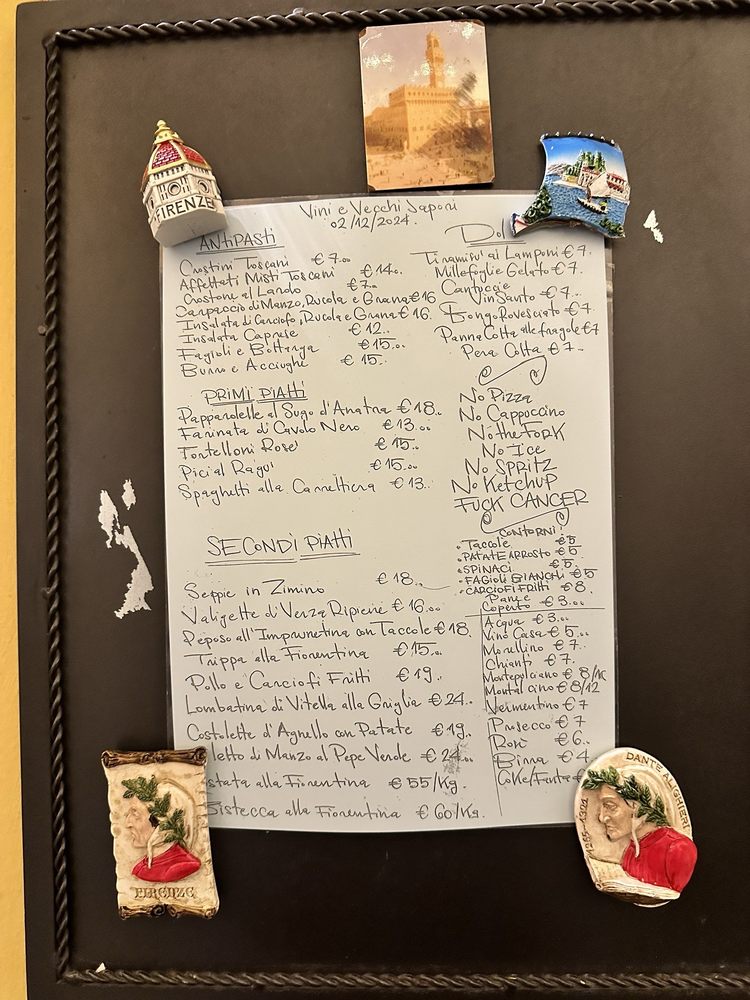 FIRENZE
Vini e Vecchi Saponi
02/12/2024.
ANTIPASTI
Crostini Toscani € 7.00
Affettati Misti Toscani € 14..
Crostone al Lardo € 7..
Carpaccio di Manzo, Rucola e Grana € 16
Insalata di Carciofo, Rucola e Grana € 16.
Insalata Caprese € 12..
Fagioli e Bottarga € 15..
Burro e Acciughe € 15..
PRIMI PIATTI
Papparolelle al Sugo d'Anatra € 18..
Farinata di Cavolo Nero € 13.00
Tortelloni Rose' € 15..
Pici al Ragu' € 15.00
Spaghetti alla Carrettiera € 13..
SECONDI PIATTI
Seppie in Zimino € 18..
Valigette di Verza Ripiene € 16.00
Peposo all'Imprunetina con Taccole € 18.
Trippa alla Fiorentina € 15..
Pollo e Carciofi Fritti € 19..
Lombatina di Vitella alla Griglia € 24..
Costolette d'Agnello con Patate € 19..
letto di Manzo al Pepe Verde € 24..
stata alla Fiorentina € 55/Kg.
istecca alla Fiorentina € 60/Kg.
Dol
Tiramisu' ai Lamponi € 7.
Millefoglie Gelato € 7.
Cantucci e
Vin Santo € 7.
Fongo Rovesciato € 7.
Panna Cotta alle fragole € 7
Pera Cotta € 7..
No Pizza
No Cappuccino
No the FORK
No Ice
No SPRITZ
No KETCHUP
FUCK CANCER
CONTORNI!
. Taccole € 5
. PATATE ARROSTO € 5
. SPINACI € 5.
. FAGIOLI BIANCHI € 5
. CARCIOFI FRITTI € 8.
Pane e
Coperto € 3.00
Acqua € 3.00
Vino Casa € 5..
Morellino € 7.
Chianti € 7.
Montepulciano € 8/10
Montalcino € 8/12
Vermentino € 7
Prosecco € 7
Rosé € 6..
Birra € 4
Coke/Fanta €
FIRENZE
DANTE ALIGHIERI
1265-1321